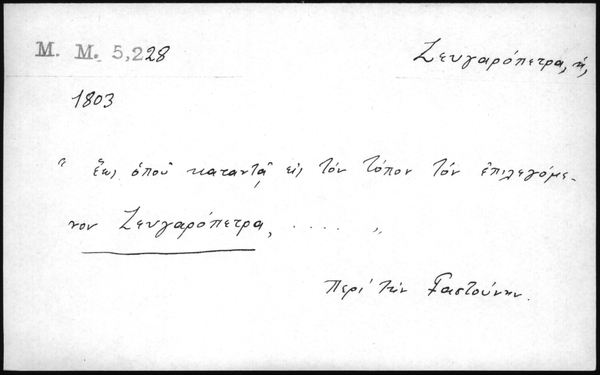 M. M. 5,228
Ζευγαρόπετρα, ἡ,
1803
“ ἕως ὁποῦ καταντᾷ εἰς τὸν τόπον τὸν ἐπιλεγόμε-
νον Ζευγαρόπετρα, ..... „
Περὶ τὴν Γαστούνην.